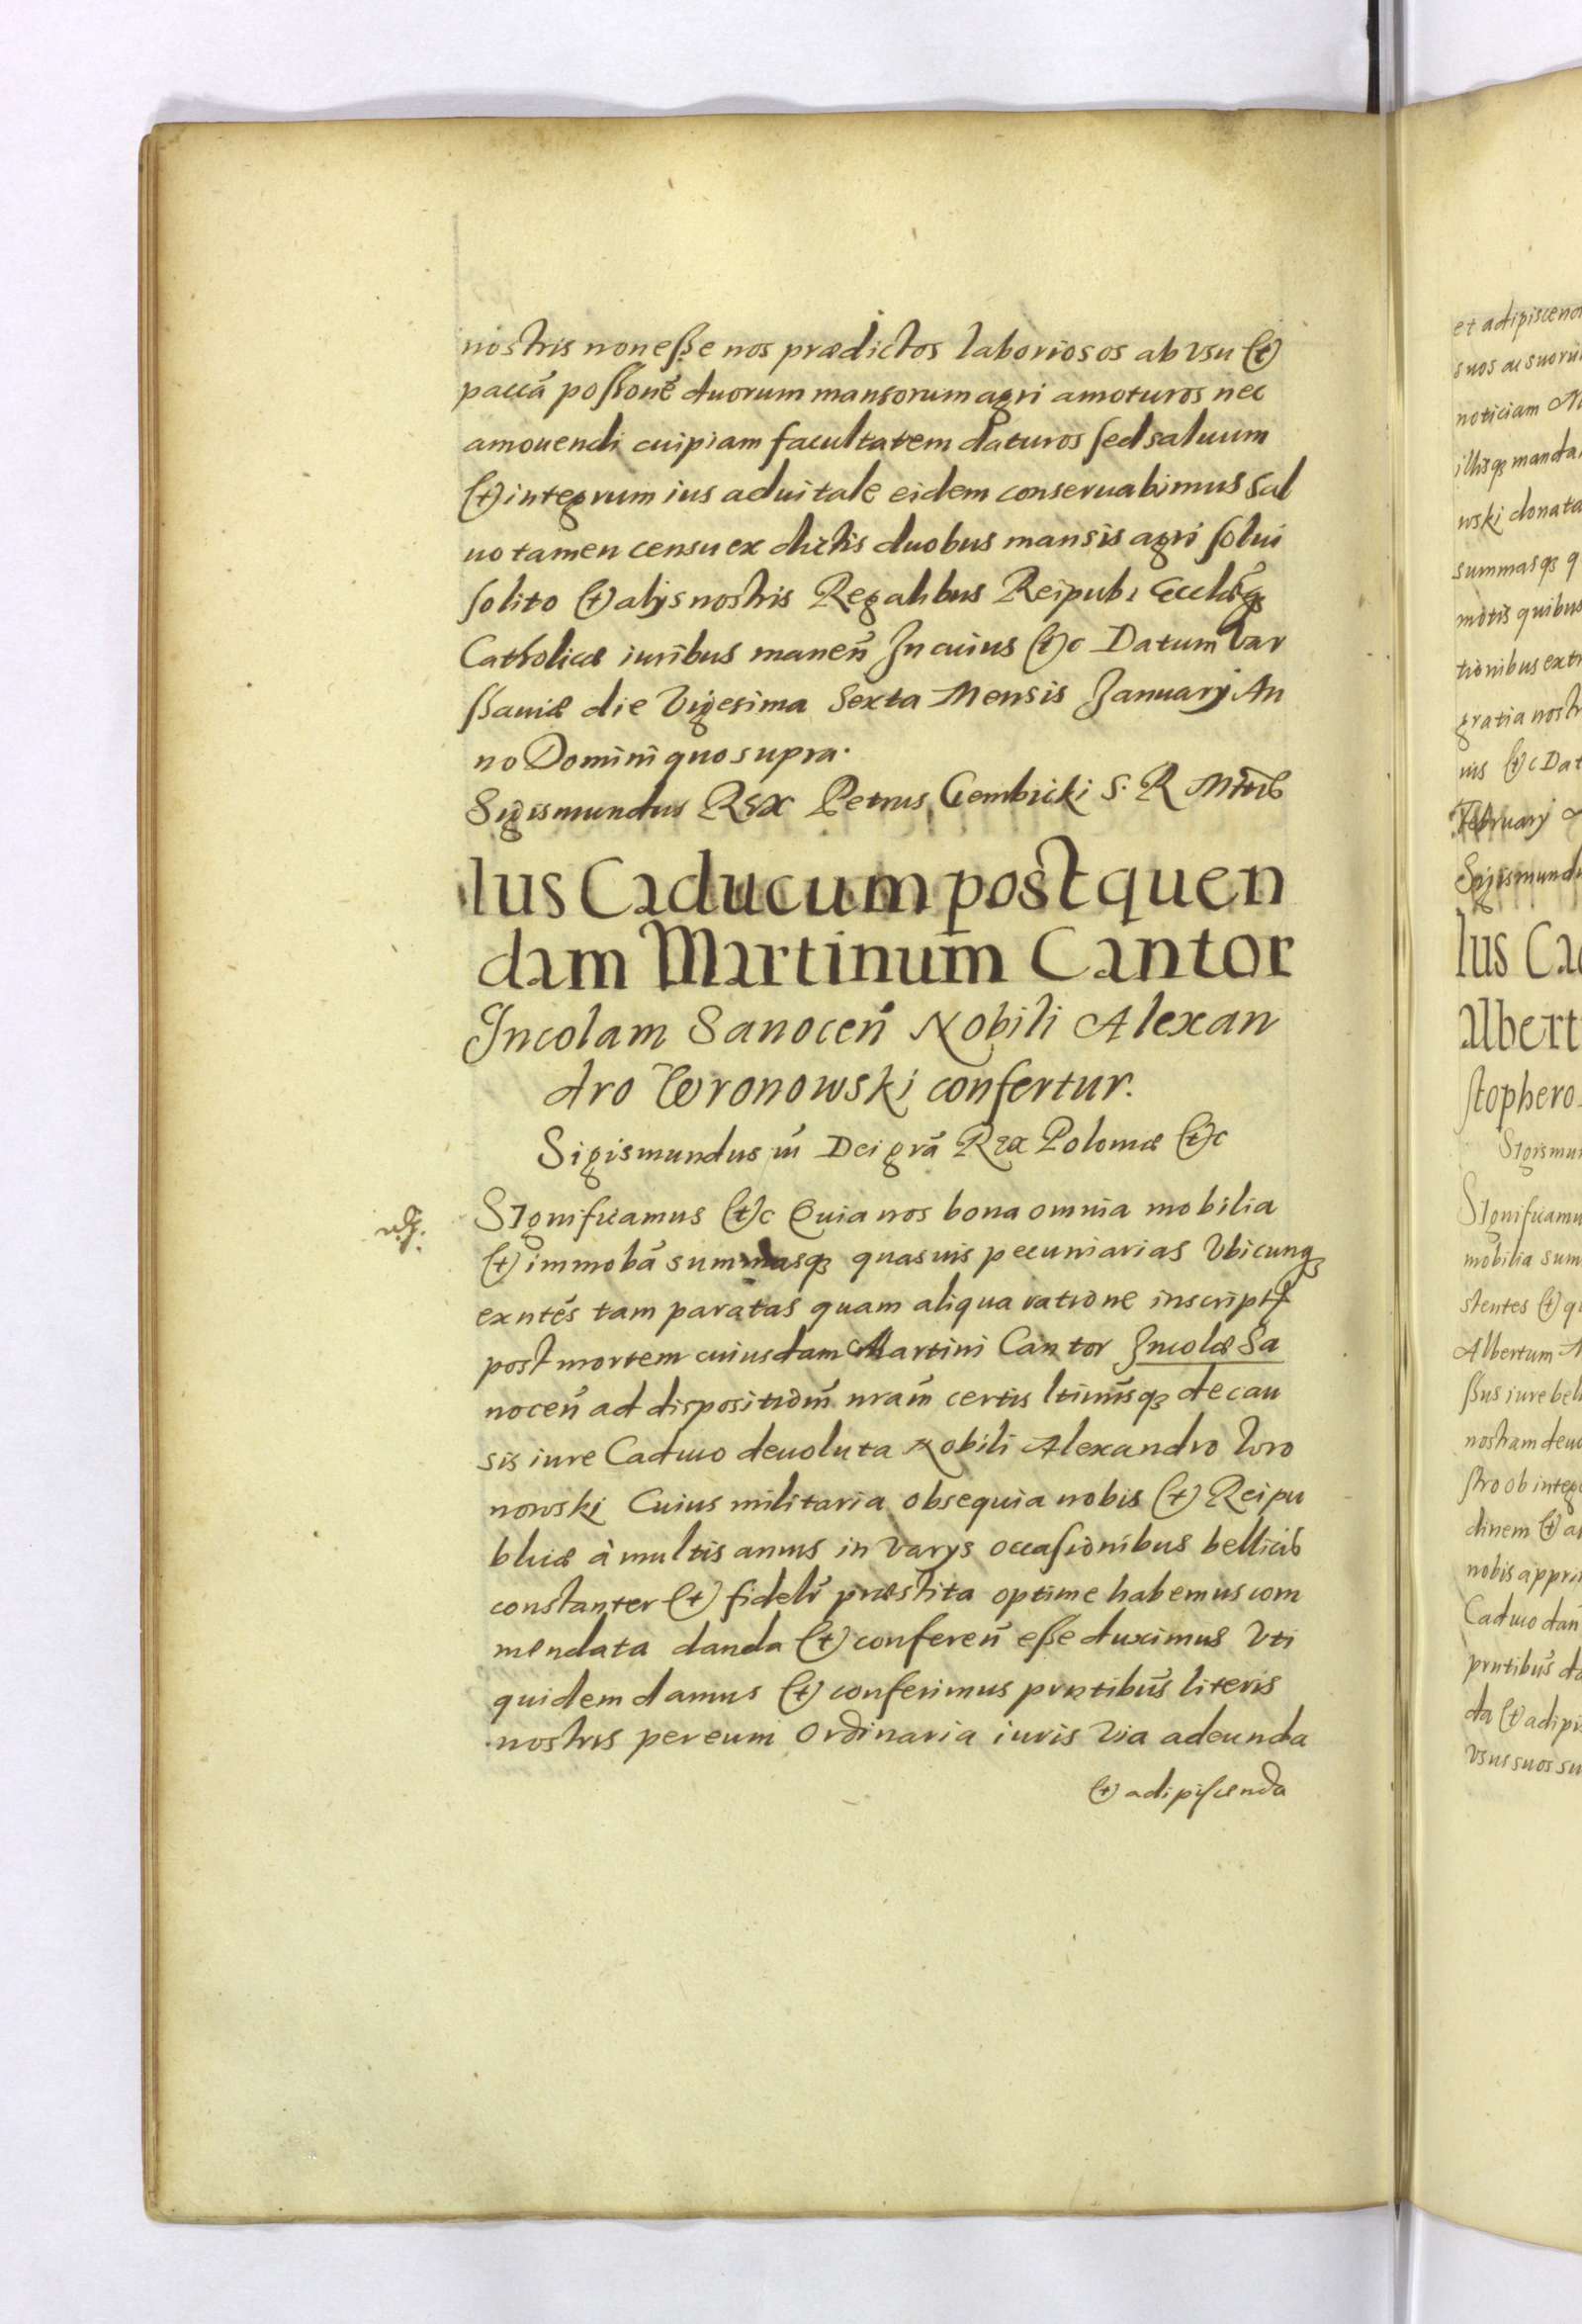 nostris non eſſe nos prædictos laboriosos ab vsu et
paccã poſſonẽ duorum mansorum agri amoturos nec
amouendi cuipiam facultatem daturos ſed saluum
et integrum ius aduitale eidem conseruabimus Sal
uo tamen censu ex dictis duobus mansis agri ſolui
ſolito et alijs nostris Regalibus Reipub: Eccl̃æqꝫ
Catholicæ iuribus maneñ In cuius etc Datum Var
ſſauiæ die Vigesima Sexta Mensis Januarij An
no Domini quo supra.
Sigismundus Rex Petrus Gembicki S. R. Mttis
Ius Caducum post quen
dam Martinum Cantor
Incolam Sanoceñ Nobili Alexan
dro Wronowski confertur.
Sigismundus iii Dei grã Rex Poloniæ etc
Significamus etc Quia nos bona omnia mobilia
et immobã summasqꝫ quasuis pecuniarias Vbicunqꝫ
exntẽs tam paratas quam aliqua ratione inscriptas
post mortem cuiusdam Martini Cantor Incolæ Sa
noceñ ad dispositionẽ nram̃ certis ltimisqꝫ de cau
sis iure Caduco deuoluta Nobili Alexandro Wro
nowski Cuius militaria obsequia nobis et Reipu
blicæ à multis annis in Varijs occaſionibus bellicis
constanter et fidelr̃ præstita optime habemus com
mendata danda et confereñ eſſe duximus Vti
quidem damus et conferimus prntibus̃ literis
nostris per eum Ordinaria iuris Via adeunda
et adipiſcenda
et adipiscend
suos ac suorũ
noticiam
illisqꝫ manda
wski donata
summasqꝫ q
motis quibus
tionibus extr
gratia nostr
ius etc Dat
February
Sigismundu
Ius Ca
Albert
stophero
Sigismu
Significamu
mobilia sum
stentes et q
Albertum
ſſus iure bel
nostram deuo
ſtro ob integ
dinem et a
nobis appri
Caduco dan
prntibus̃ da
da et adipi
Vsus suos su